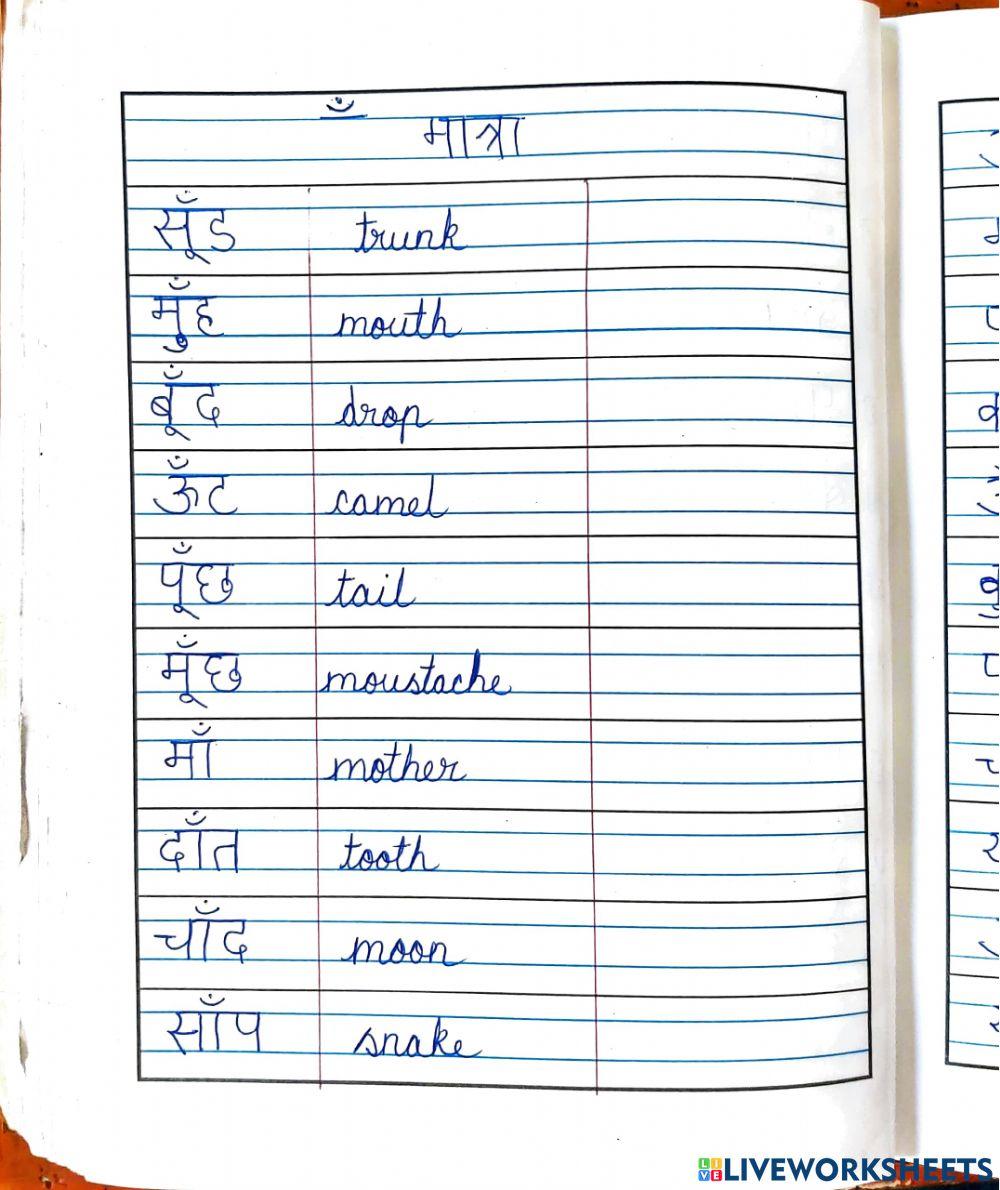 ँ मात्रा
सूँड trunk
मुँह mouth
बूँद drop
ऊँट camel
पूँछ tail
मूँछ moustache
माँ mother
दाँत tooth
चाँद moon
साँप snake
LIVEWORKSHEETS